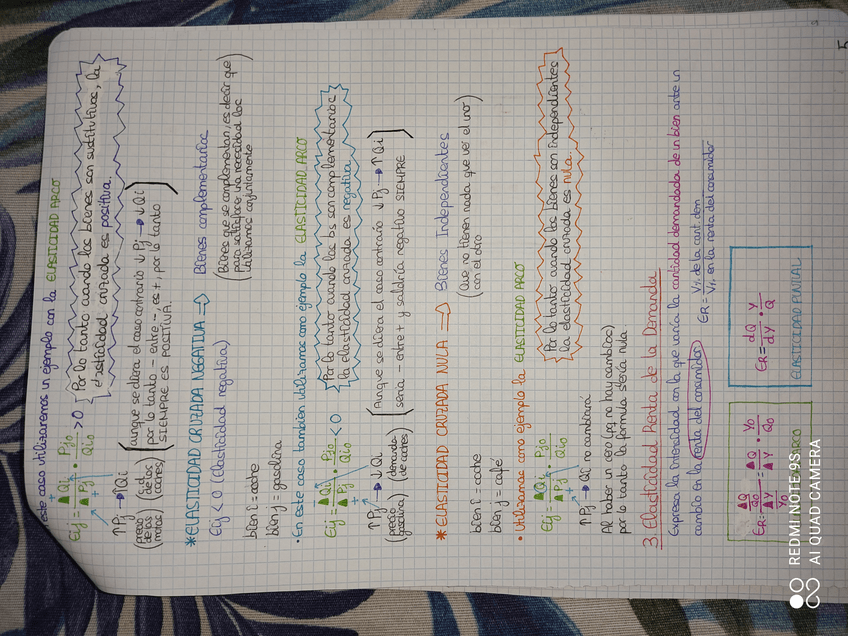 este caso utilizaremos un ejemplo con la ELASTICIDAD ARCO
Eij = ΔQi/ΔPj · Pj0/Qi0 > 0
Por lo tanto cuando los bienes son sustitutivos, la
elasticidad cruzada es positiva.
↑Pj → ↑Qi
(precio de las motos) (cdad de los coches)
(aunque se diera el caso contrario ↓Pj → ↓Qi
por lo tanto - entre -, es +, por lo tanto
SIEMPRE ES POSITIVA.)
*ELASTICIDAD CRUZADA NEGATIVA ⇒ Bienes complementarios
Eij < 0 (Elasticidad negativa)
(Bienes que se complementan, es decir que
para satisfacer una necesidad los
utilizamos conjuntamente)
bien i = coche
bien j = gasolina
• En este caso también utilizamos como ejemplo la ELASTICIDAD ARCO
Eij = ΔQi/ΔPj · Pj0/Qi0 < 0
Por lo tanto cuando los bs son complementarios
la elasticidad cruzada es negativa.
↑Pj → ↓Qi
(precio gasolina) (demanda de coches)
(Aunque se diera el caso contrario ↓Pj → ↑Qi
sería - entre + y saldría negativo SIEMPRE)
*ELASTICIDAD CRUZADA NULA ⇒ Bienes Independientes
(Que no tienen nada que ver el uno
con el otro)
bien i = coche
bien j = café
• Utilizamos como ejemplo la ELASTICIDAD ARCO
Eij = ΔQi/ΔPj · Pj0/Qi0
Por lo tanto cuando los bienes son independientes
la elasticidad cruzada es nula.
↑Pj → Qi no cambiará
Al haber un cero (pq no hay cambios)
por lo tanto la formula sería nula
3 Elasticidad Renta de la Demanda
Expresa la intensidad con la que varía la cantidad demandada de un bien ante un
cambio en la renta del consumidor
ER = V% de la cant. dem / V% en la renta del consumidor
ER = ΔQ/Q0 / ΔY/Y0 = ΔQ/ΔY · Y0/Q0
ARCO
ER = dQ/dY · Y/Q
ELASTICIDAD PUNTUAL
5
REDMI NOTE 9S
AI QUAD CAMERA